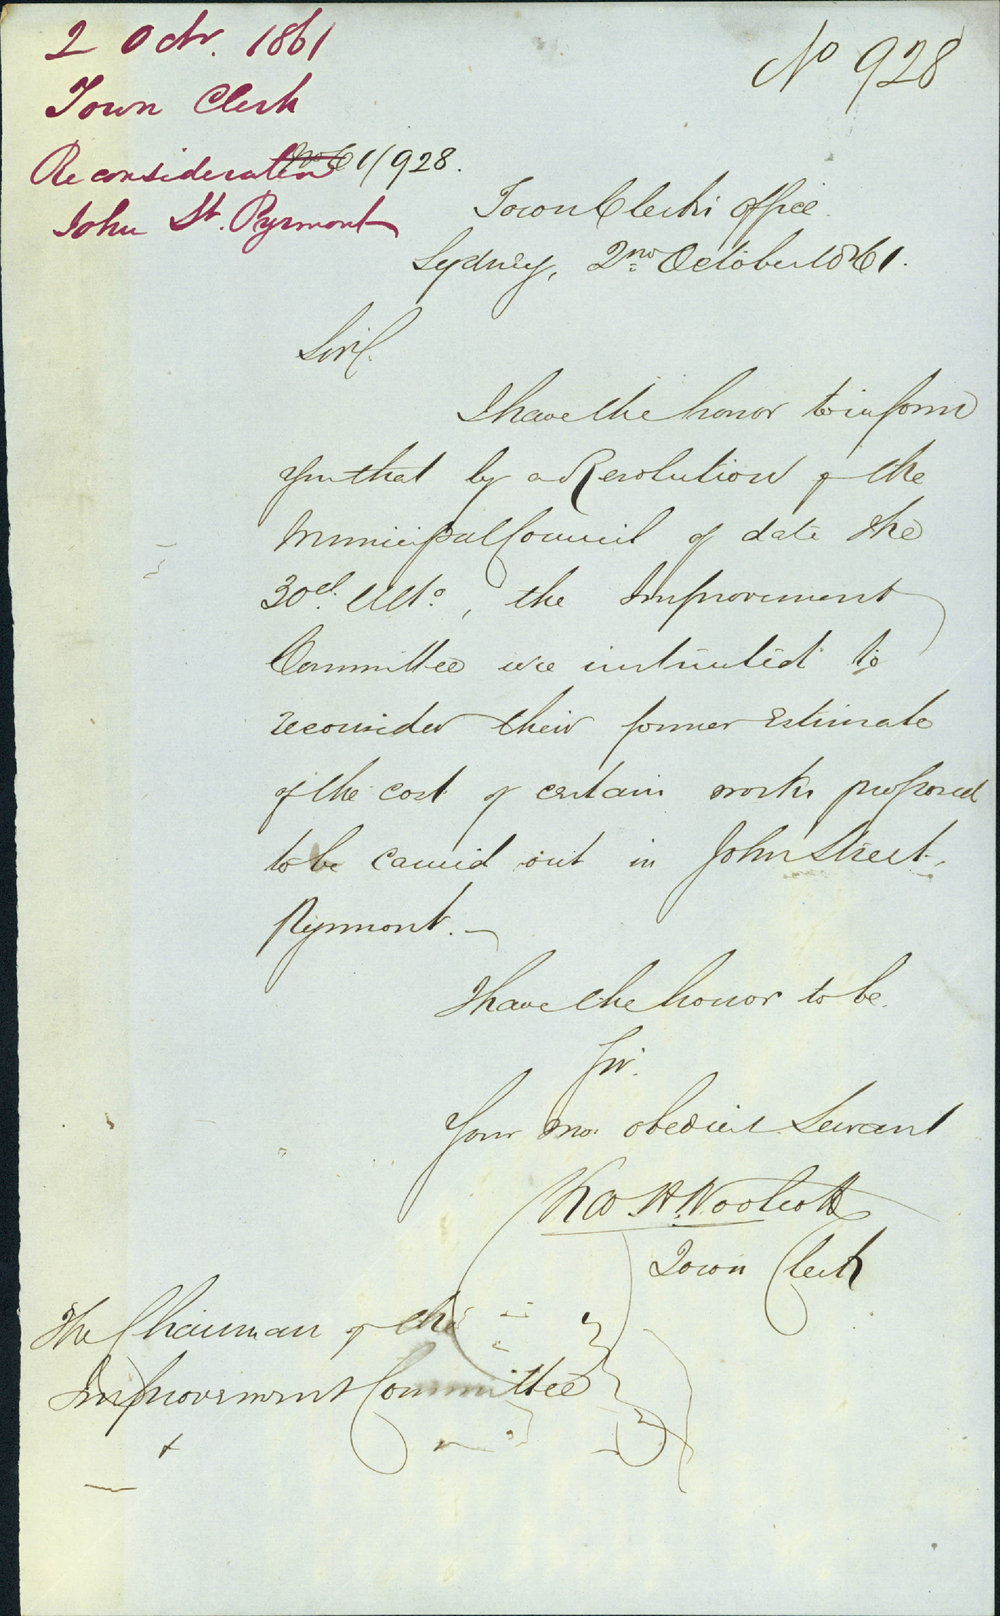 2 Octr. 1861
Town Clerk
Reconsideration
John St. Pyrmont
No 928
61/928.
Town Clerk's Office.
Sydney, 2nd October 1861.
Sir,
I have the honor to inform
you that by a Resolution of the
Municipal Council of date the
30th. Ulto., the Improvement
Committee were instructed to
reconsider their former Estimate
of the cost of certain works proposed
to be carried out in John Street,
Pyrmont. -
I have the honor to be.
Sir.
Your mo. obedient Servant
Chas. H. Woolcott
Town Clerk
The Chairman of the
Improvement Committee